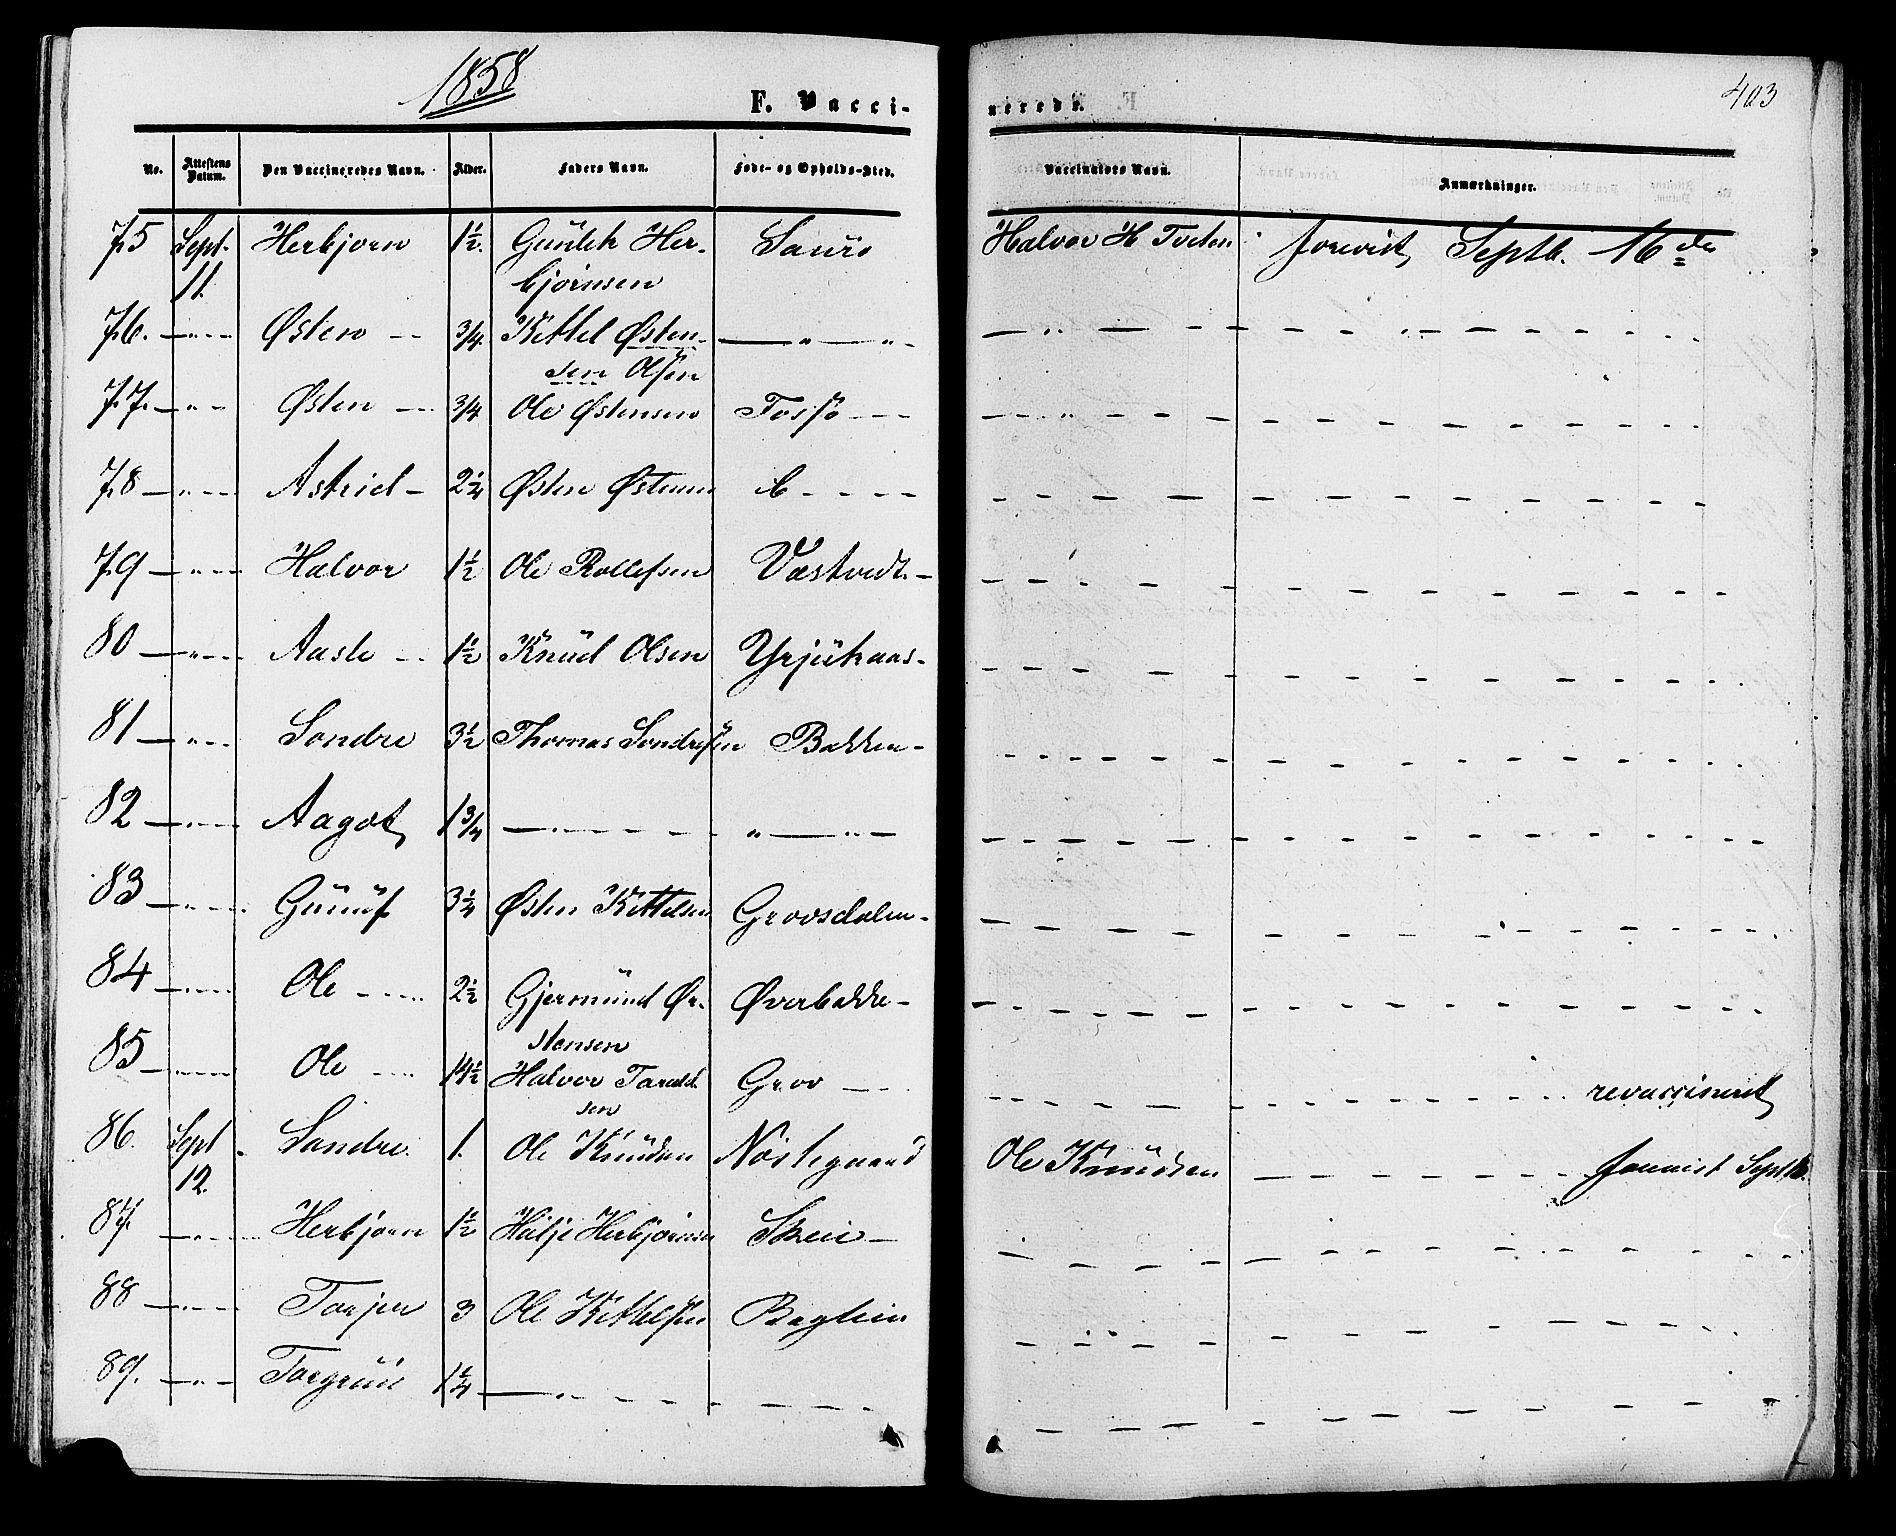 1858
F. Vacci-
nerede.
403
No. Attestens Datum. Den Vaccineredes Navn. Alder. Faders Navn. Føde- og Opholds-Sted. Vaccinators Navn. Anmærkninger.
75 Sept. 11. Herbjorn 1½. Gunlek Her- Sauro Halvor H Tveten forevist Septb. 16de
bjørnsen
76. — " — Østen — 3/4. Kittel Østen- — " — " —
sen Olsen
77. — " — Østen — 3/4 Ole Østensen Fossø —
78 — " — Astrid — 2¼ Østen Østensen
79 — " — Halvor 1½ Ole Rollefsen Vastvedt —
80 — " — Aasle — 1½ Knud Olsen
81 — " — Sondre 3½ Thomas Sondresen Bakken —
82 — " — Aagot 1 3/4 — " — " — " —
83 — " — Gunuf 3¼ Østen Kittelsen Grovsdalen —
84 — " — Ole — 2½ Gjermund Øy- Øverbakke —
stensen
85 — " — Ole — 14½ Halvor Tarald Grov — revaccineret
sen
86. Sept 12. Sondre. 1. Ole Knudsen Nordegaard Ole Knudsen — forevist Sept 16.
87. — " — Herbjorn 1½ Hølje Herbjørnsen Skeie —
88 — " — Torjer 3 Ole Kittelsen Boglein
89. — " — Torgrim 1¼ — " —